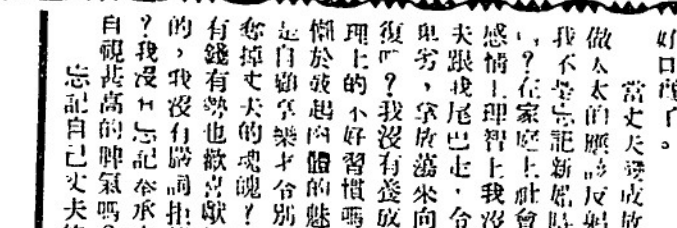 好口⋯了。
當丈夫變成放
做太太的應該反躬
我不曾忘記新婚時
？在家庭上社會
感情上理智上我沒
夫跟我尾巴走，令
卑劣，拿放蕩來向
復？我沒有養成
理上的不好習慣嗎
懶於鼓起肉體的魅
是自顧享樂才令別
奪掉丈夫的魂魄？
有錢有勢也歡喜
的，我沒有嚴詞拒
？我沒有忘記奉承
自視甚高的脾氣嗎？
忘記自己丈夫